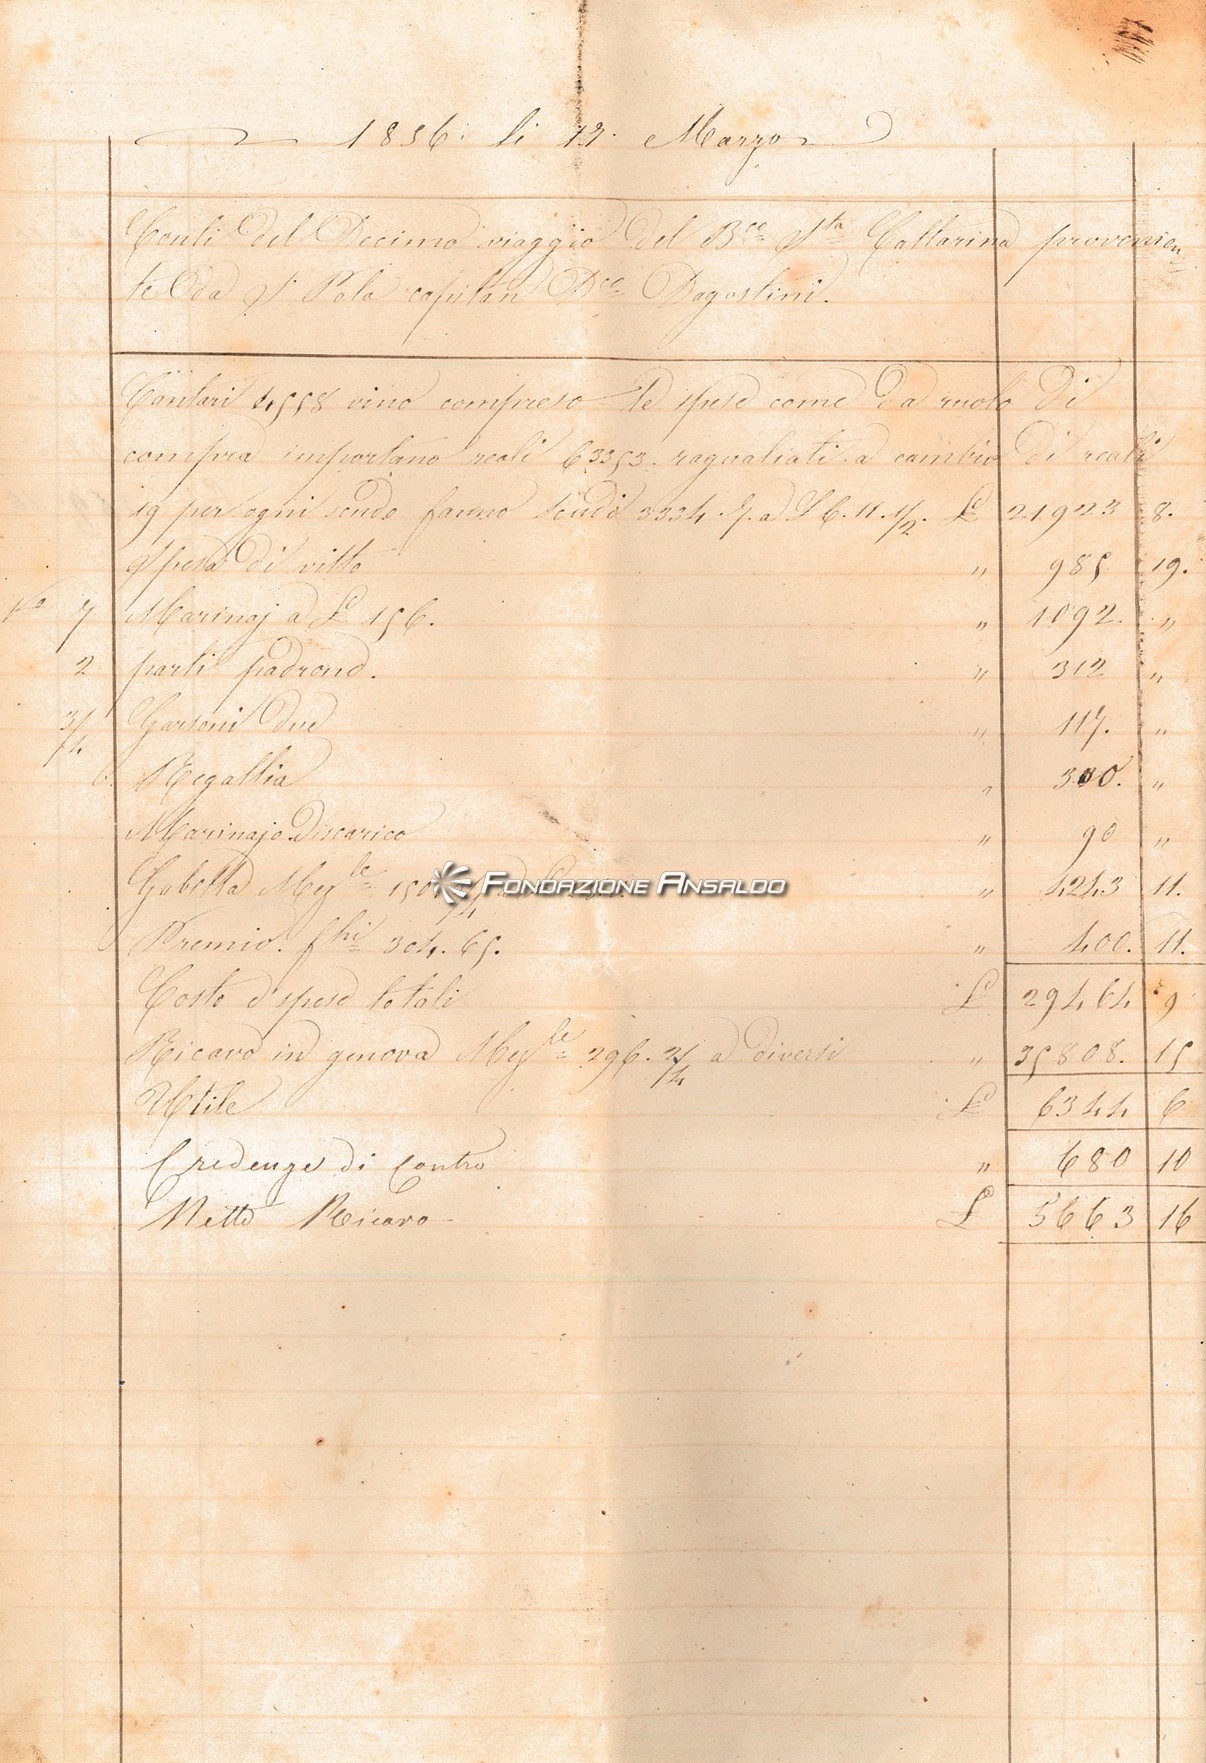 1856: li 12. Marzo
Conti del Decimo viaggio del Bce Sta Cattarina provenien
te da S Pola capitan Dco Dagostini.
Cantari 4558 vino compreso le spese come da ruolo di
compra importano reali 63353. ragualiati a cambio di reali
19 per ogni scudo fanno scudi 3334.7. a £ 6.11.1/2. £ 21923 8.
Spesa di vitto " 985 19.
No 7 Marinaj a £ 156. " 1092. "
2 parti padrone. " 312 "
3/4 Garsoni due " 117. "
Regallia " 300. "
Marinajo Discarico " 90 "
Gabella Mezle " 4243 11.
FONDAZIONE ANSALDO
Premio. fchi 304.65. " 400. 11.
Costo e spese totali £ 29464 9
Ricavo in genova Mezle 296.2/4 a diversi " 35808. 15
Utile £ 6344 6
Credenze di Contro " 680 10
Netto Ricavo £ 5663 16